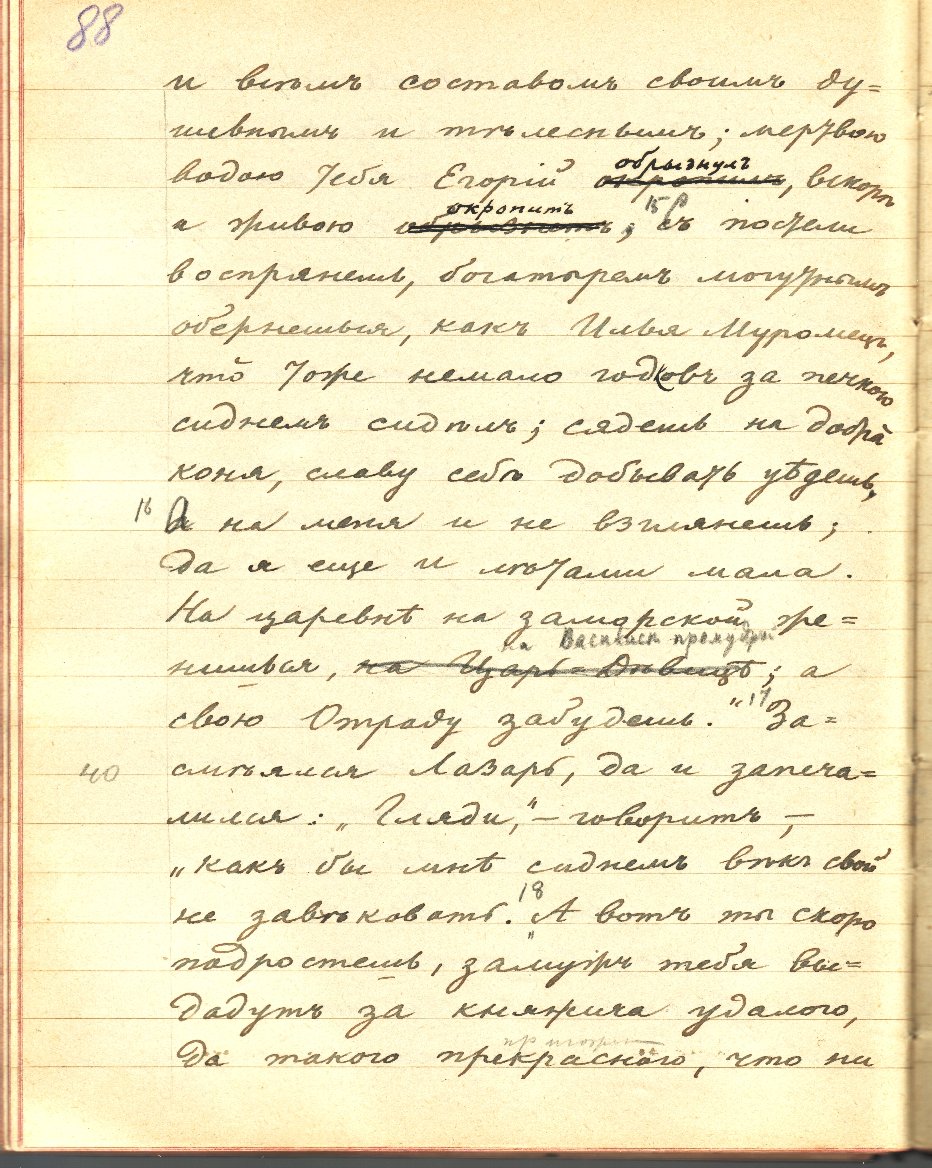 88
и всѣмъ составомъ своимъ ду=
шевнымъ и тѣлеснымъ; мертвою
обрызнулъ
водою тебя Егорій окропилъ, вскорѣ
окропитъ 15
а живою обрызнитъ; съ постели
воспрянешь, богатыремъ могутнымъ
обернешься, какъ Илья Муромецъ,
что̀ тоже немало годовъ за печкою
сиднемъ сидѣлъ; сядешь на добра̀
коня, славу себѣ добывать уѣдешь,
16 А на меня и не взглянешь;
Да я еще и лѣтами мала.
На царевнѣ на заморской же=
на Василисѣ премудрой
нишься, на Царь-Дѣвицѣ; а
свою Отраду забудешь." 17 За=
40 смѣялся Лазарь, да и запеча=
лился: „Гляди," – говоритъ, –
„какъ бы мнѣ сиднемъ вѣкъ свой
18
не завѣковать. А вотъ ты скоро
подростешь, замужъ тебя вы=
дадутъ за княжича удалого,
Да такого прекраснаго, что ни